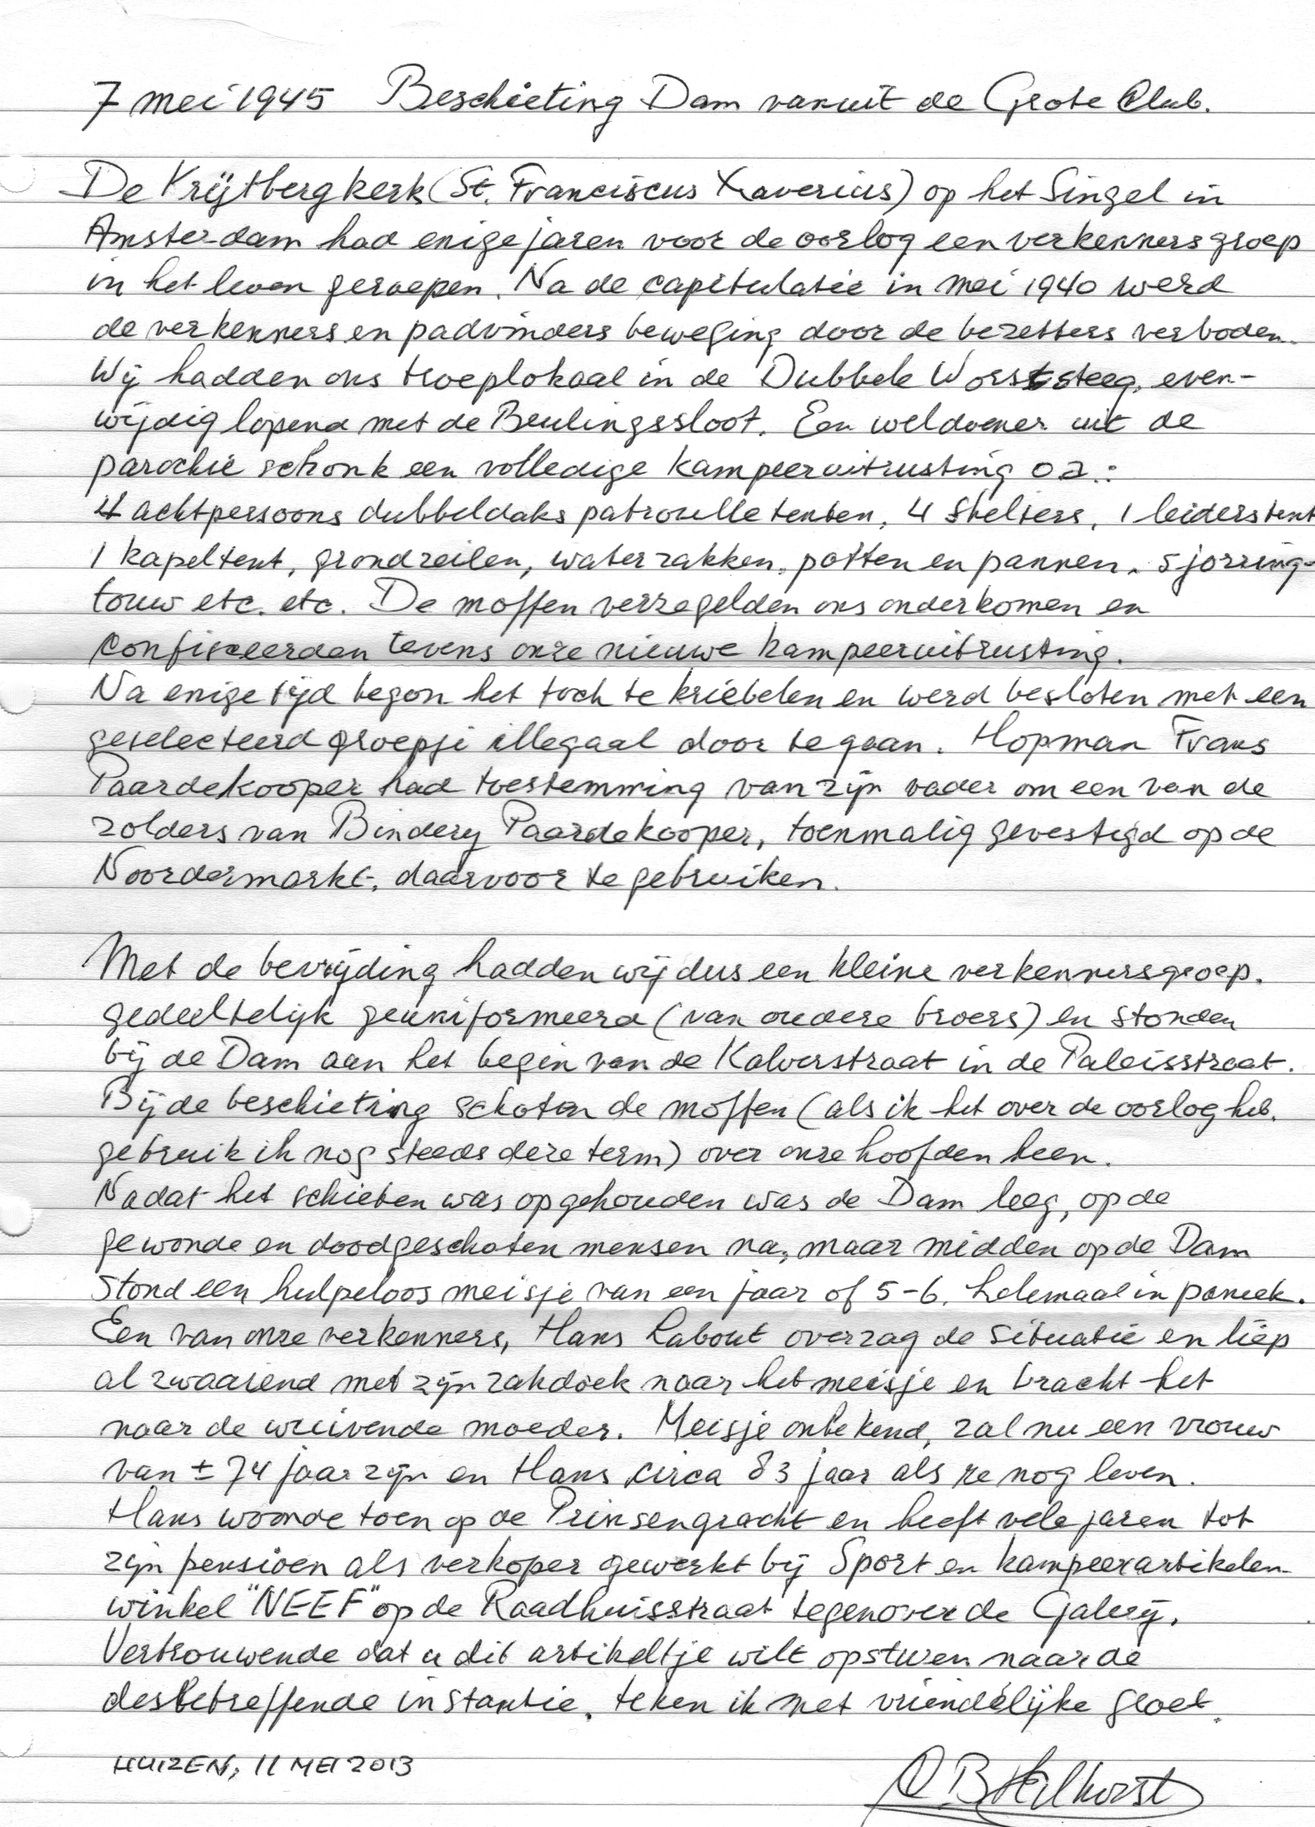 7 mei 1945 Beschieting Dam vanuit de Grote Club.
De Krijtbergkerk (St. Franciscus Xaverius) op het Singel in
Amsterdam had enige jaren voor de oorlog een verkennersgroep
in het leven geroepen. Na de capitulatie in mei 1940 werd
de verkenners en padvinders beweging door de bezetters verboden.
Wij hadden ons troeplokaal in de Dubbele Worststeeg, even-
wijdig lopend met de Beulingssloot. Een weldoener uit de
parochie schonk een volledige kampeeruitrusting o.a.:
4 achtpersoons dubbeldaks patrouilletenten, 4 shelters, 1 leiderstent
1 kapeltent, grondzeilen, waterzakken, potten en pannen, sjorring-
touw etc. etc. De moffen verzegelden ons onderkomen en
confisceerden tevens onze nieuwe kampeeruitrusting.
Na enige tijd begon het toch te kriebelen en werd besloten met een
geselecteerd groepje illegaal door te gaan. Hopman Frans
Paardekooper had toestemming van zijn vader om een van de
zolders van Binderij Paardekooper, toenmalig gevestigd op de
Noordermarkt, daarvoor te gebruiken.
Met de bevrijding hadden wij dus een kleine verkennersgroep.
gedeeltelijk geuniformeerd (van oudere broers) en stonden
bij de Dam aan het begin van de Kalverstraat in de Paleisstraat.
Bij de beschieting schoten de moffen (als ik het over de oorlog heb,
gebruik ik nog steeds deze term) over onze hoofden heen.
Nadat het schieten was opgehouden was de Dam leeg, op de
gewonde en doodgeschoten mensen na, maar midden op de Dam
stond een hulpeloos meisje van een jaar of 5-6, helemaal in paniek.
Een van onze verkenners, Hans Labout overzag de situatie en liep
al zwaaiend met zijn zakdoek naar het meisje en bracht het
naar de wuivende moeder. Meisje onbekend, zal nu een vrouw
van ± 74 jaar zijn en Hans circa 83 jaar als ze nog leven.
Hans woonde toen op de Prinsengracht en heeft vele jaren tot
zijn pensioen als verkoper gewerkt bij Sport en kampeerartikelen-
winkel "NEEF" op de Raadhuisstraat tegenover de Galerij.
Vertrouwende dat u dit artikeltje wilt opsturen naar de
desbetreffende instantie, teken ik met vriendelijke groet.
HUIZEN, 11 MEI 2013
B Hilhorst